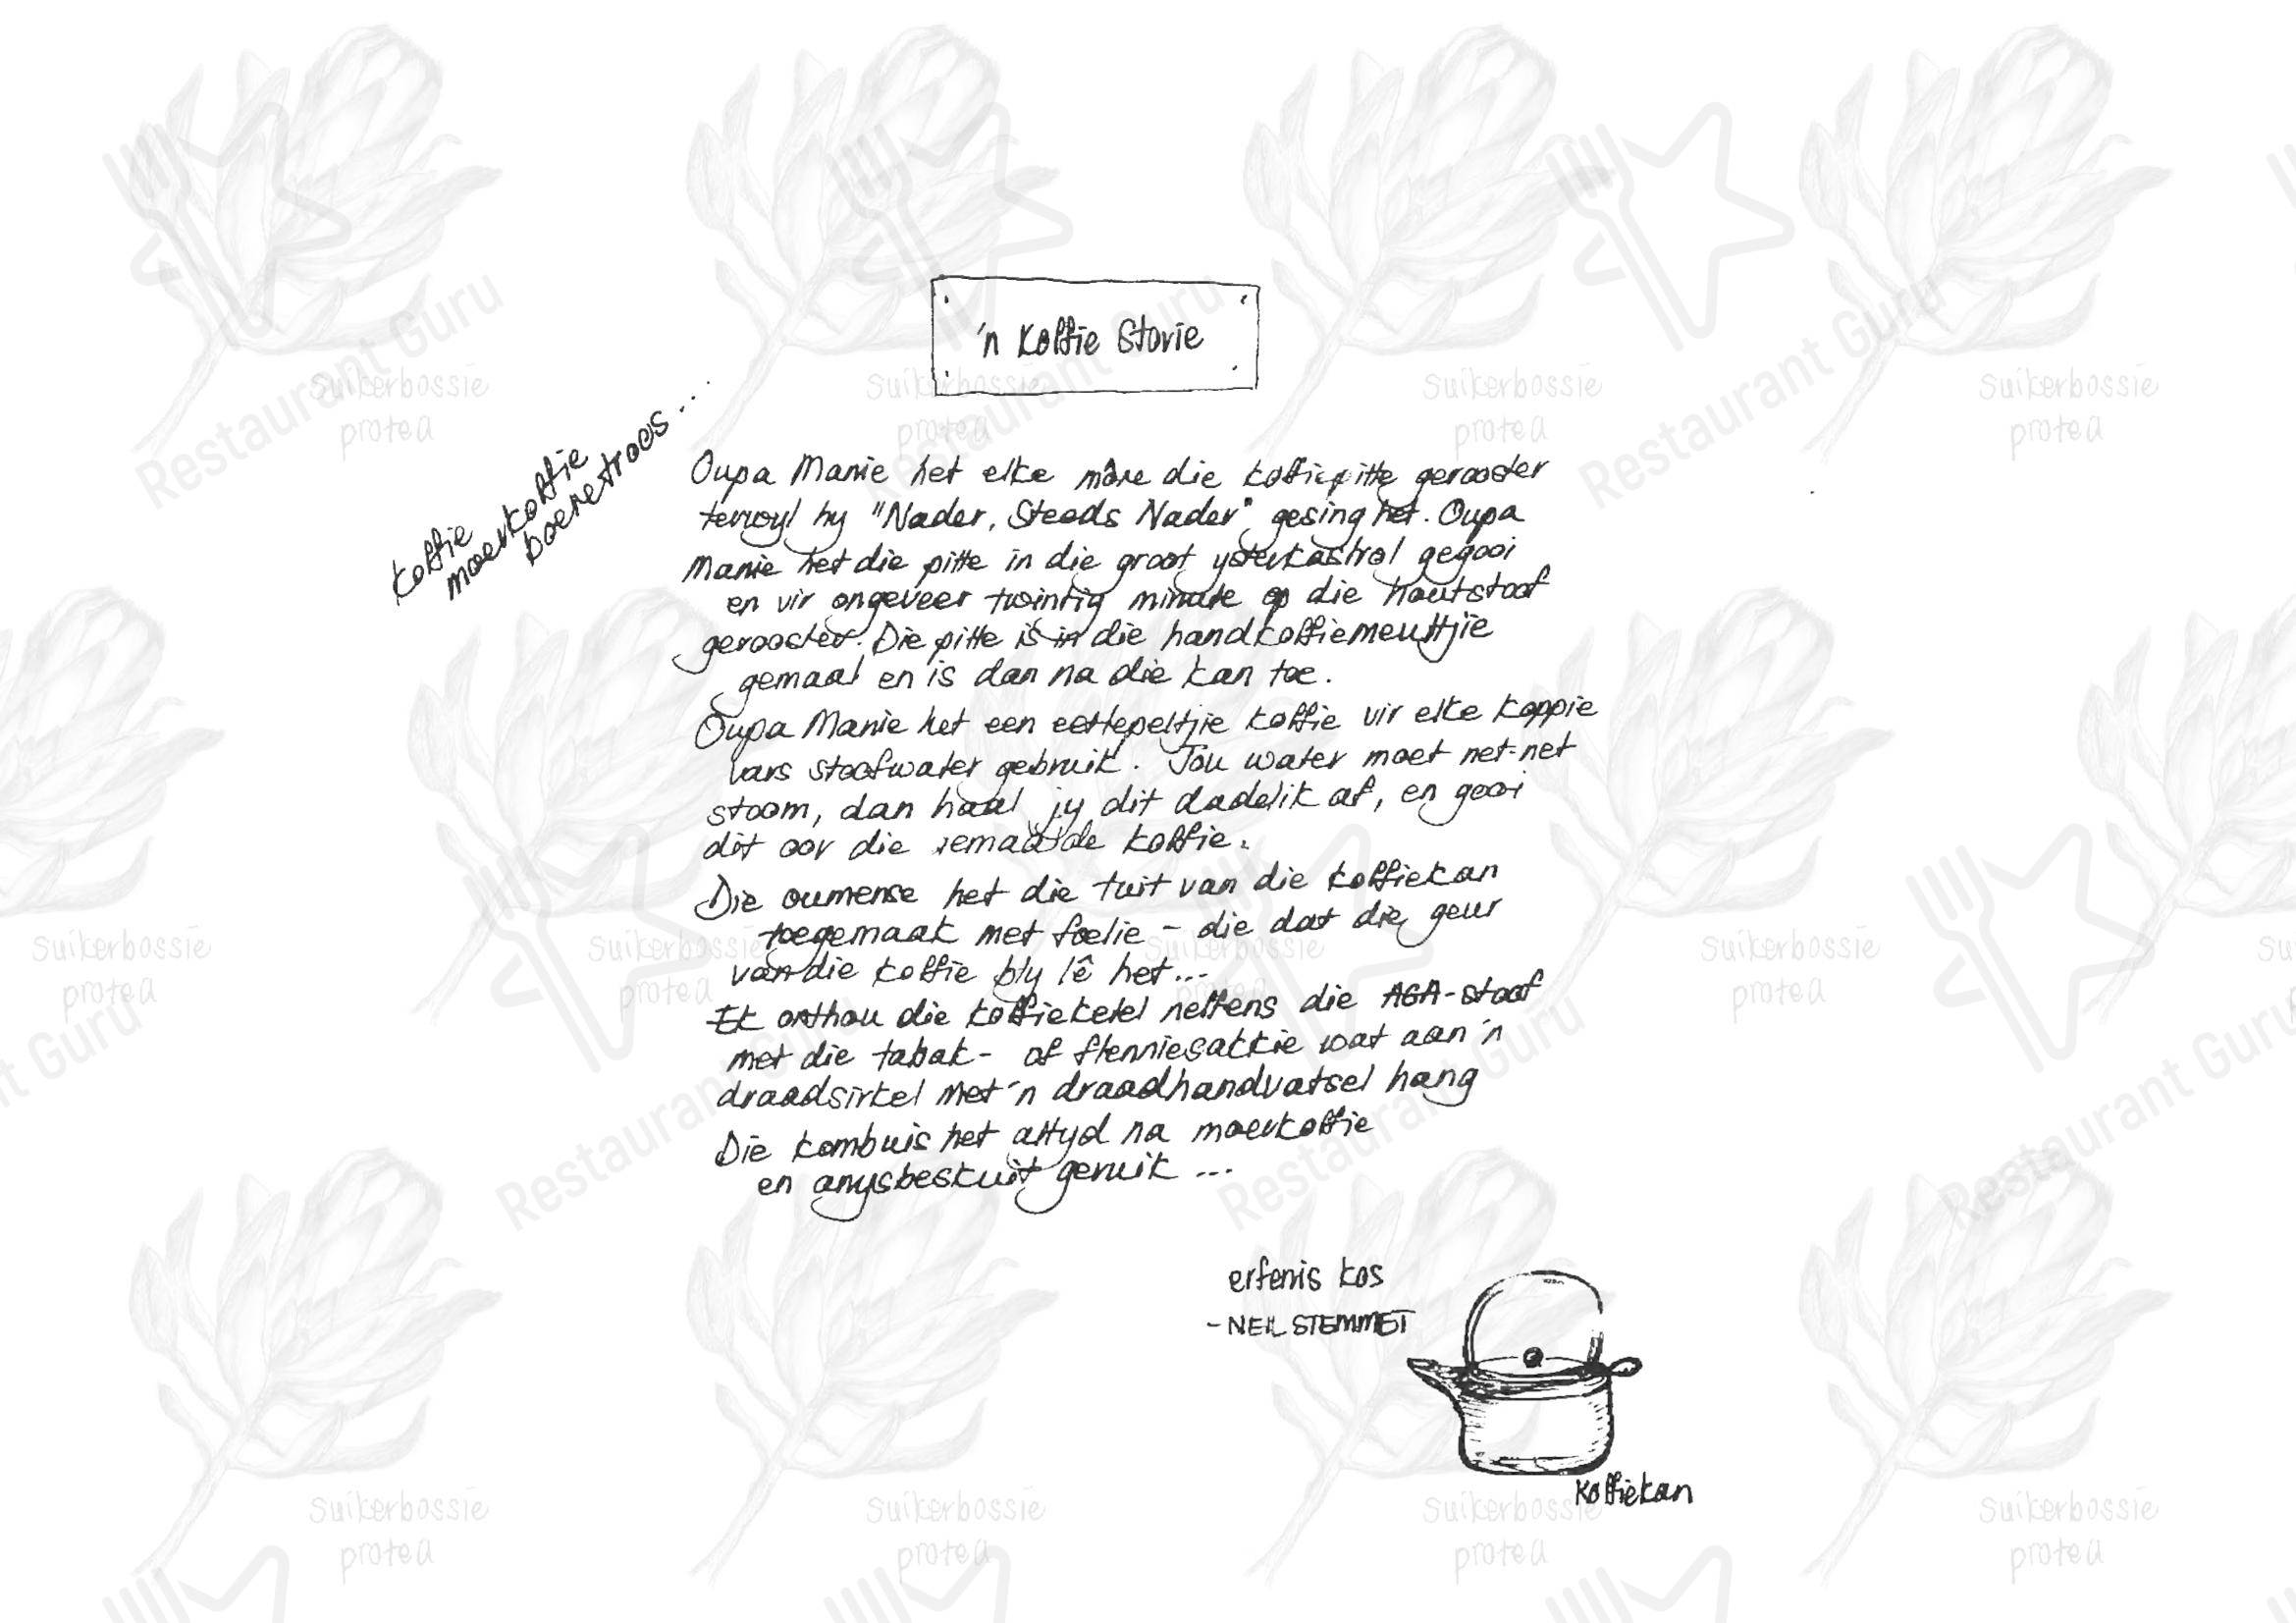 'n Koffie Storie
koffie
moerkoffie
boeretroos...
Oupa Manie het elke môre die koffiepitte gerooster
terwyl hy "Nader, Steeds Nader" gesing het. Oupa
Manie het die pitte in die groot ysterkastrol gegooi
en vir ongeveer twintig minute op die houtstoof
gerooster. Die pitte is in die handkoffiemeultjie
gemaal en is dan na die kan toe.
Oupa Manie het een eetlepeltjie koffie vir elke koppie
vars stoofwater gebruik. Jou water moet net-net
stoom, dan haal jy dit dadelik af, en gooi
dit oor die gemaalde koffie.
Die oumense het die tuit van die koffiekan
toegemaak met foelie - die dat die geur
van die koffie bly lê het...
Ek onthou die koffieketel neffens die AGA-stoof
met die tabak- of flenniesakkie wat aan 'n
draadsirkel met 'n draadhandvatsel hang
Die kombuis het altyd na moerkoffie
en anysbeskuit geruik ...
erfenis kos
- NEIL STEMMET
Koffiekan
Suikerbossie
protea
Restaurant Guru